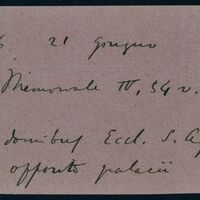 6 21 giugno
Memoriale IV, 54 v.
domibus Eccl. S. Ap
opposito palacii